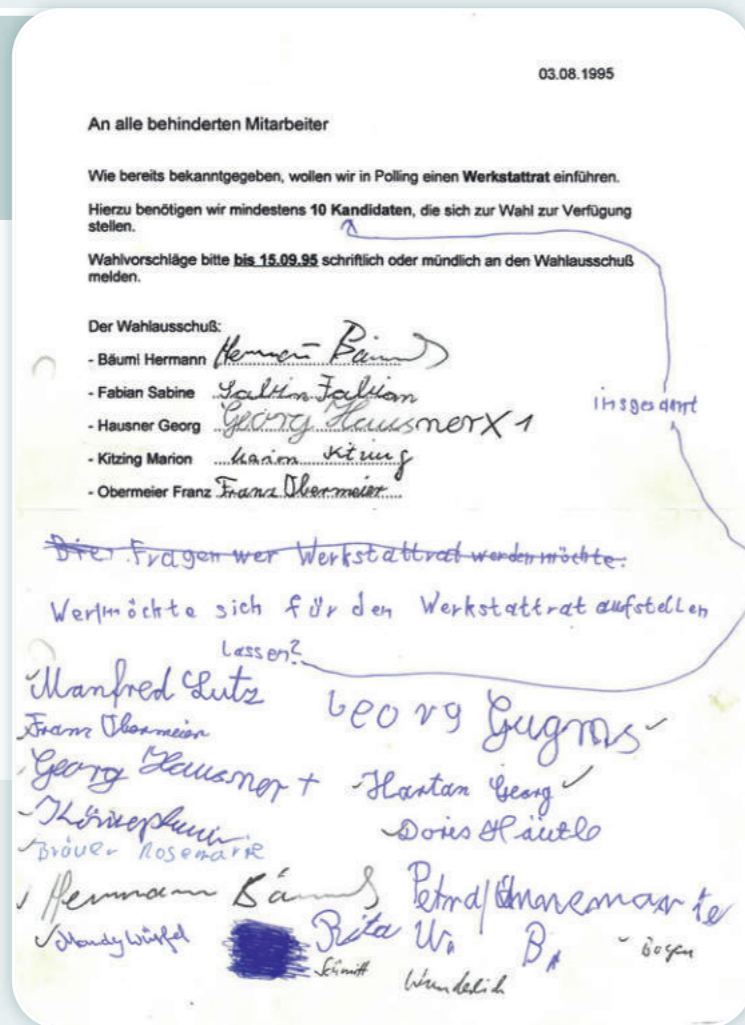 03.08.1995
An alle behinderten Mitarbeiter
Wie bereits bekanntgegeben, wollen wir in Polling einen Werkstattrat einführen.
Hierzu benötigen wir mindestens 10 Kandidaten, die sich zur Wahl zur Verfügung
stellen.
Wahlvorschläge bitte bis 15.09.95 schriftlich oder mündlich an den Wahlausschuß
melden.
Der Wahlausschuß:
- Bäuml Hermann Hermann Bäuml
- Fabian Sabine Sabine Fabian
- Hausner Georg Georg Hausner X 1
- Kitzing Marion Marion Kitzing
- Obermeier Franz Franz Obermeier
insgesamt
Fragen wer Werkstattrat werden möchte.
Wer möchte sich für den Werkstattrat aufstellen
lassen?
Manfred Lutz Georg
Franz Obermeier
Georg Hausner + Hartan Georg
Doris Häutle
Bräuer Rosemarie
Hermann Bäuml Petra Annemarie
Mandy Würfel Rita W. B.
Schmitt Wunderlich